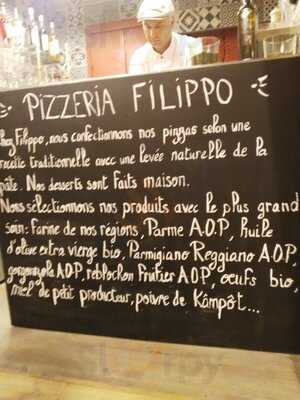 PIZZERIA FILIPPO
Chez Filippo, nous confectionnons nos pizzas selon une
recette traditionnelle avec une levée naturelle de la
pâte. Nos desserts sont faits maison.
Nous sélectionnons nos produits avec le plus grand
soin: Farine de nos régions, Parme A.O.P, Huile
d'olive extra vierge bio, Parmigiano Reggiano A.O.P,
gorgonzola A.O.P, reblochon fruitier A.O.P, oeufs bio,
miel de petit producteur, poivre de Kâmpôt...